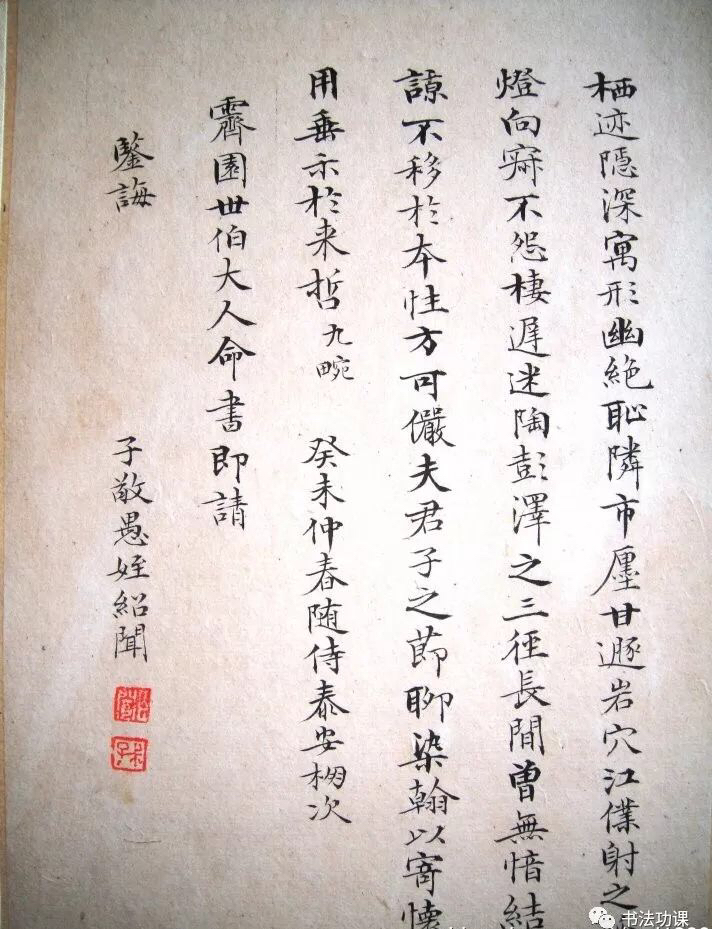 栖迹隱深寓形幽絕恥隣市廛甘遯岩穴江僕射之
燈向窮不怨棲遲迷陶彭澤之三徑長閒曾無愔結
諒不移於本性方可儷夫君子之節聊染翰以寄懷
用垂示於来哲 九畹 癸未仲春随侍泰安栩次
霽園世伯大人命書即請
鑒誨
子敬愚姪紹聞
书法功课